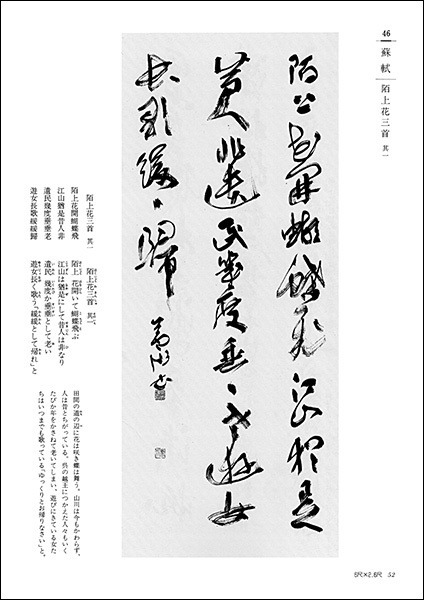 46
蘇軾
陌上花三首 其一
陌上花開蝴蝶飛江山猶是
昔人非遺民幾度垂々老遊女
長歌緩々歸
陌上花三首 其一
陌上花開蝴蝶飛
江山猶是昔人非
遺民幾度垂垂老
遊女長歌緩緩歸
陌上花三首 其一
陌上 花開いて蝴蝶飛ぶ
江山は猶是にして昔人は非なり
遺民 幾度か垂垂として老い
遊女長く歌う「緩緩として帰れ」と
田間の道の辺に花は咲き蝶は舞う。山川は今もかわらず、
人は昔とちがっている。呉の越王につかえた人々もいく
たびか年をかさねて老いてしまい、遊びにきている女た
ちはいつまでも歌っている「ゆっくりとお帰りなさい」と。
52